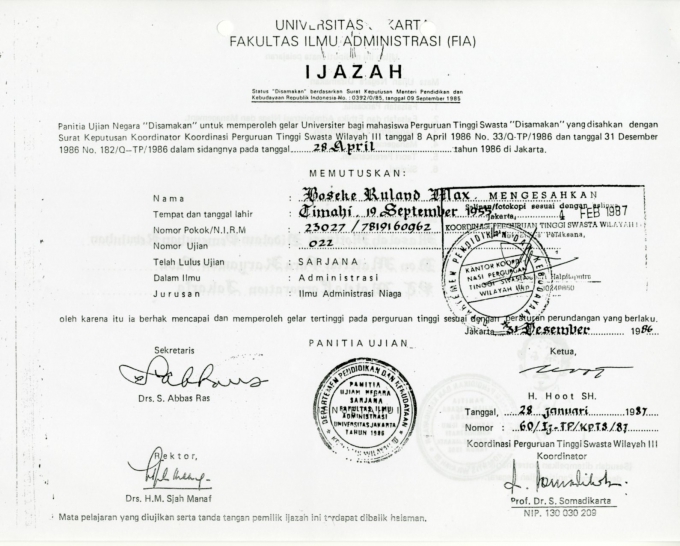 UNIVERSITAS KART
FAKULTAS ILMU ADMINISTRASI (FIA)
IJAZAH
Status "Disamakan" berdasarkan Surat Keputusan Menteri Pendidikan dan
Kebudayaan Republik Indonesia No. : 0392/0/85, tanggal 09 September 1985
Panitia Ujian Negara "Disamakan" untuk memperoleh gelar Universiter bagi mahasiswa Perguruan Tinggi Swasta "Disamakan" yang disahkan dengan
Surat Keputusan Koordinator Koordinasi Perguruan Tinggi Swasta Wilayah III tanggal 8 April 1986 No. 33/Q-TP/1986 dan tanggal 31 Desember
1986 No. 182/Q-TP/1986 dalam sidangnya pada tanggal 28 April tahun 1986 di Jakarta.
MEMUTUSKAN:
Nama : Boseke Ruland Max.
Tempat dan tanggal lahir : Timahi, 19 September 1955
Nomor Pokok/N.I.R.M : 23027 / 7819160962
Nomor Ujian : 022
Telah Lulus Ujian : SARJANA
Dalam Ilmu : Administrasi
Jurusan : Ilmu Administrasi Niaga
MENGESAHKAN
Salinan/fotokopi sesuai dengan
Jakarta, 4 FEB 1987
KOORDINASI PERGURUAN TINGGI SWASTA WILAYAH
DEPARTEMEN PENDIDIKAN DAN KEBUDAYAAN
KANTOR KOORDI
NASI PERGURUAN
TINGGI SWASTA
WILAYAH
oleh karena itu ia berhak mencapai dan memperoleh gelar tertinggi pada perguruan tinggi sesuai dengan peraturan perundangan yang berlaku.
Jakarta, 31 Desember 1986
PANITIA UJIAN
Sekretaris
Drs. S. Abbas Ras
DEPARTEMEN PENDIDIKAN DAN KEBUDAYAAN
PANITIA
UJIAN NEGARA
SARJANA
FAKULTAS ILMU
ADMINISTRASI
UNIVERSITAS JAKARTA
TAHUN 1986
Ketua,
H. Hoot SH.
Tanggal, 28 Januari 1987
Nomor : 60/II-TP/KPTS/87
Koordinasi Perguruan Tinggi Swasta Wilayah III
Koordinator
Prof. Dr. S. Somadikarta
NIP. 130 030 209
Rektor,
Drs. H.M. Sjah Manaf
Mata pelajaran yang diujikan serta tanda tangan pemilik ijazah ini terdapat dibalik halaman.